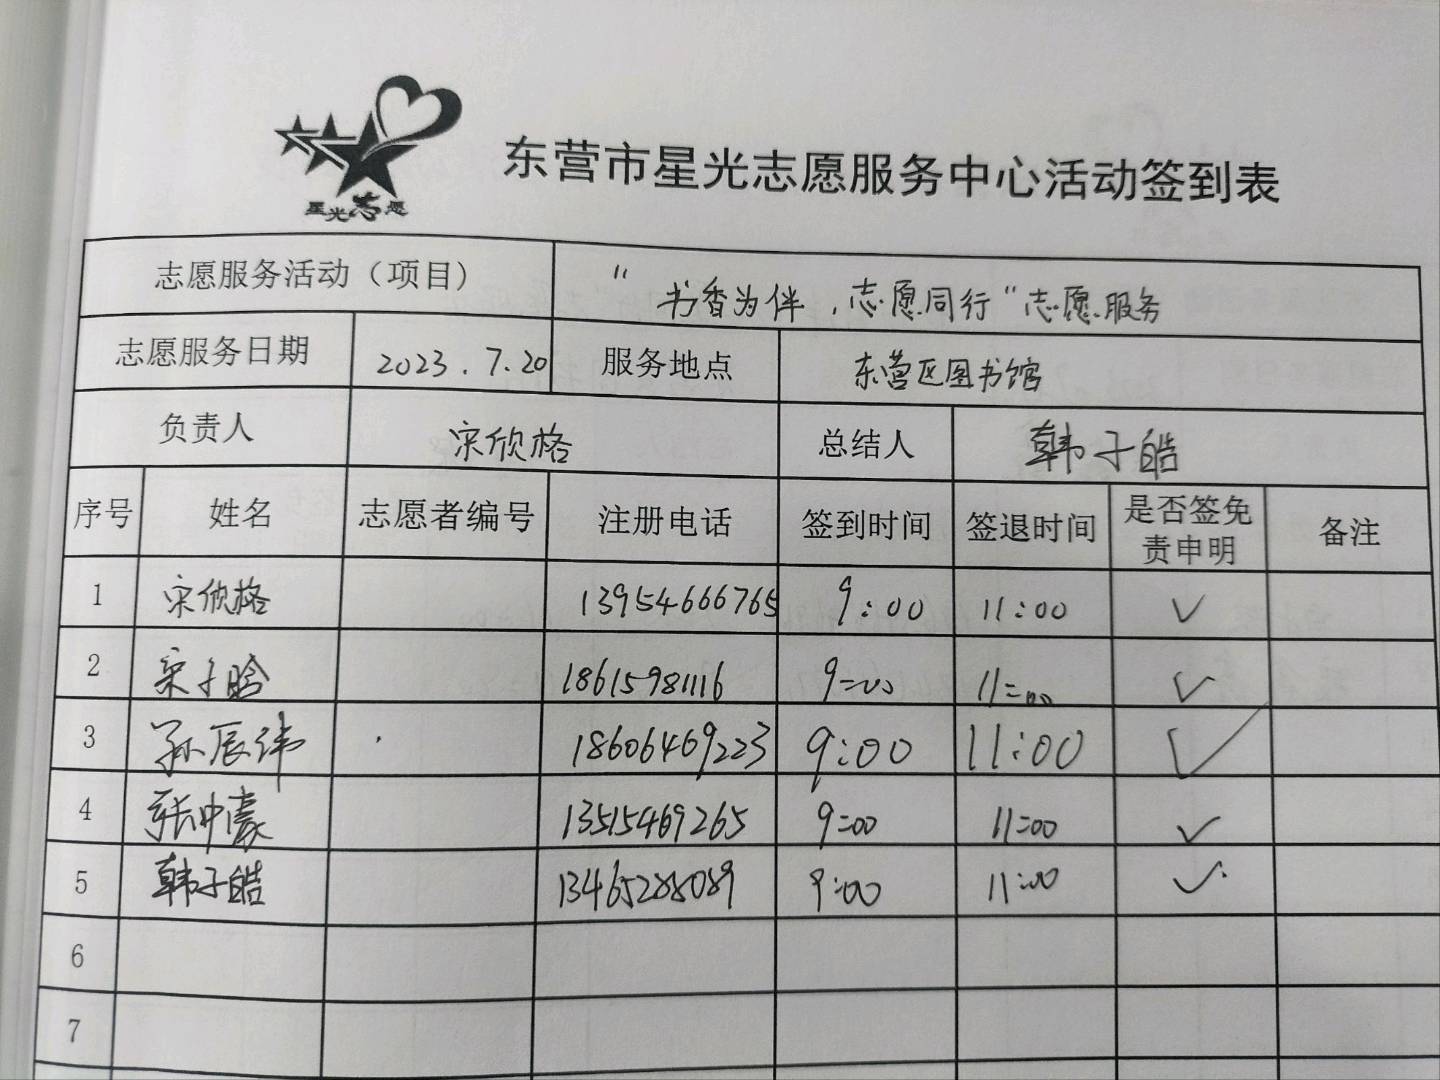 星光志愿
东营市星光志愿服务中心活动签到表
志愿服务活动（项目） “书香为伴，志愿同行”志愿服务
志愿服务日期 2023.7.20 服务地点 东营区图书馆
负责人 宋欣格 总结人 韩子皓
序号 姓名 志愿者编号 注册电话 签到时间 签退时间 是否签免责申明 备注
1 宋欣格 13954666765 9:00 11:00 ✓
2 宋子晗 18615981116 9:00 11:00 ✓
3 孙辰纬 18606469223 9:00 11:00 ✓
4 张中豪 13515469265 9:00 11:00 ✓
5 韩子皓 13465288089 9:00 11:00 ✓
6
7